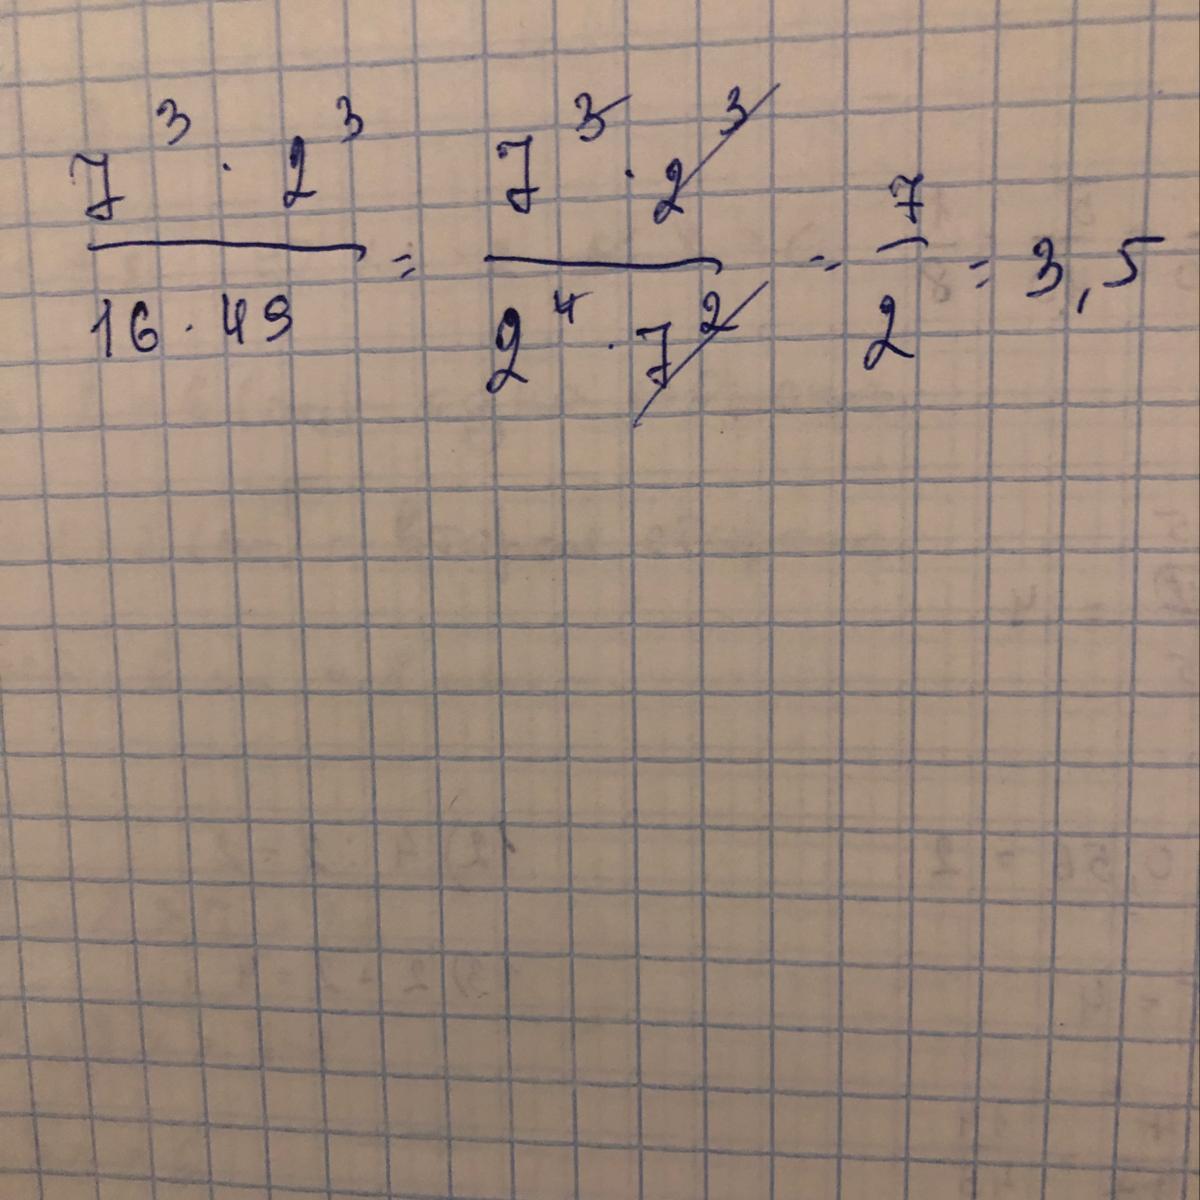 7³ · 2³ / 16 · 49 = 7³ · 2³ / 2⁴ · 7² = 7 / 2 = 3,5